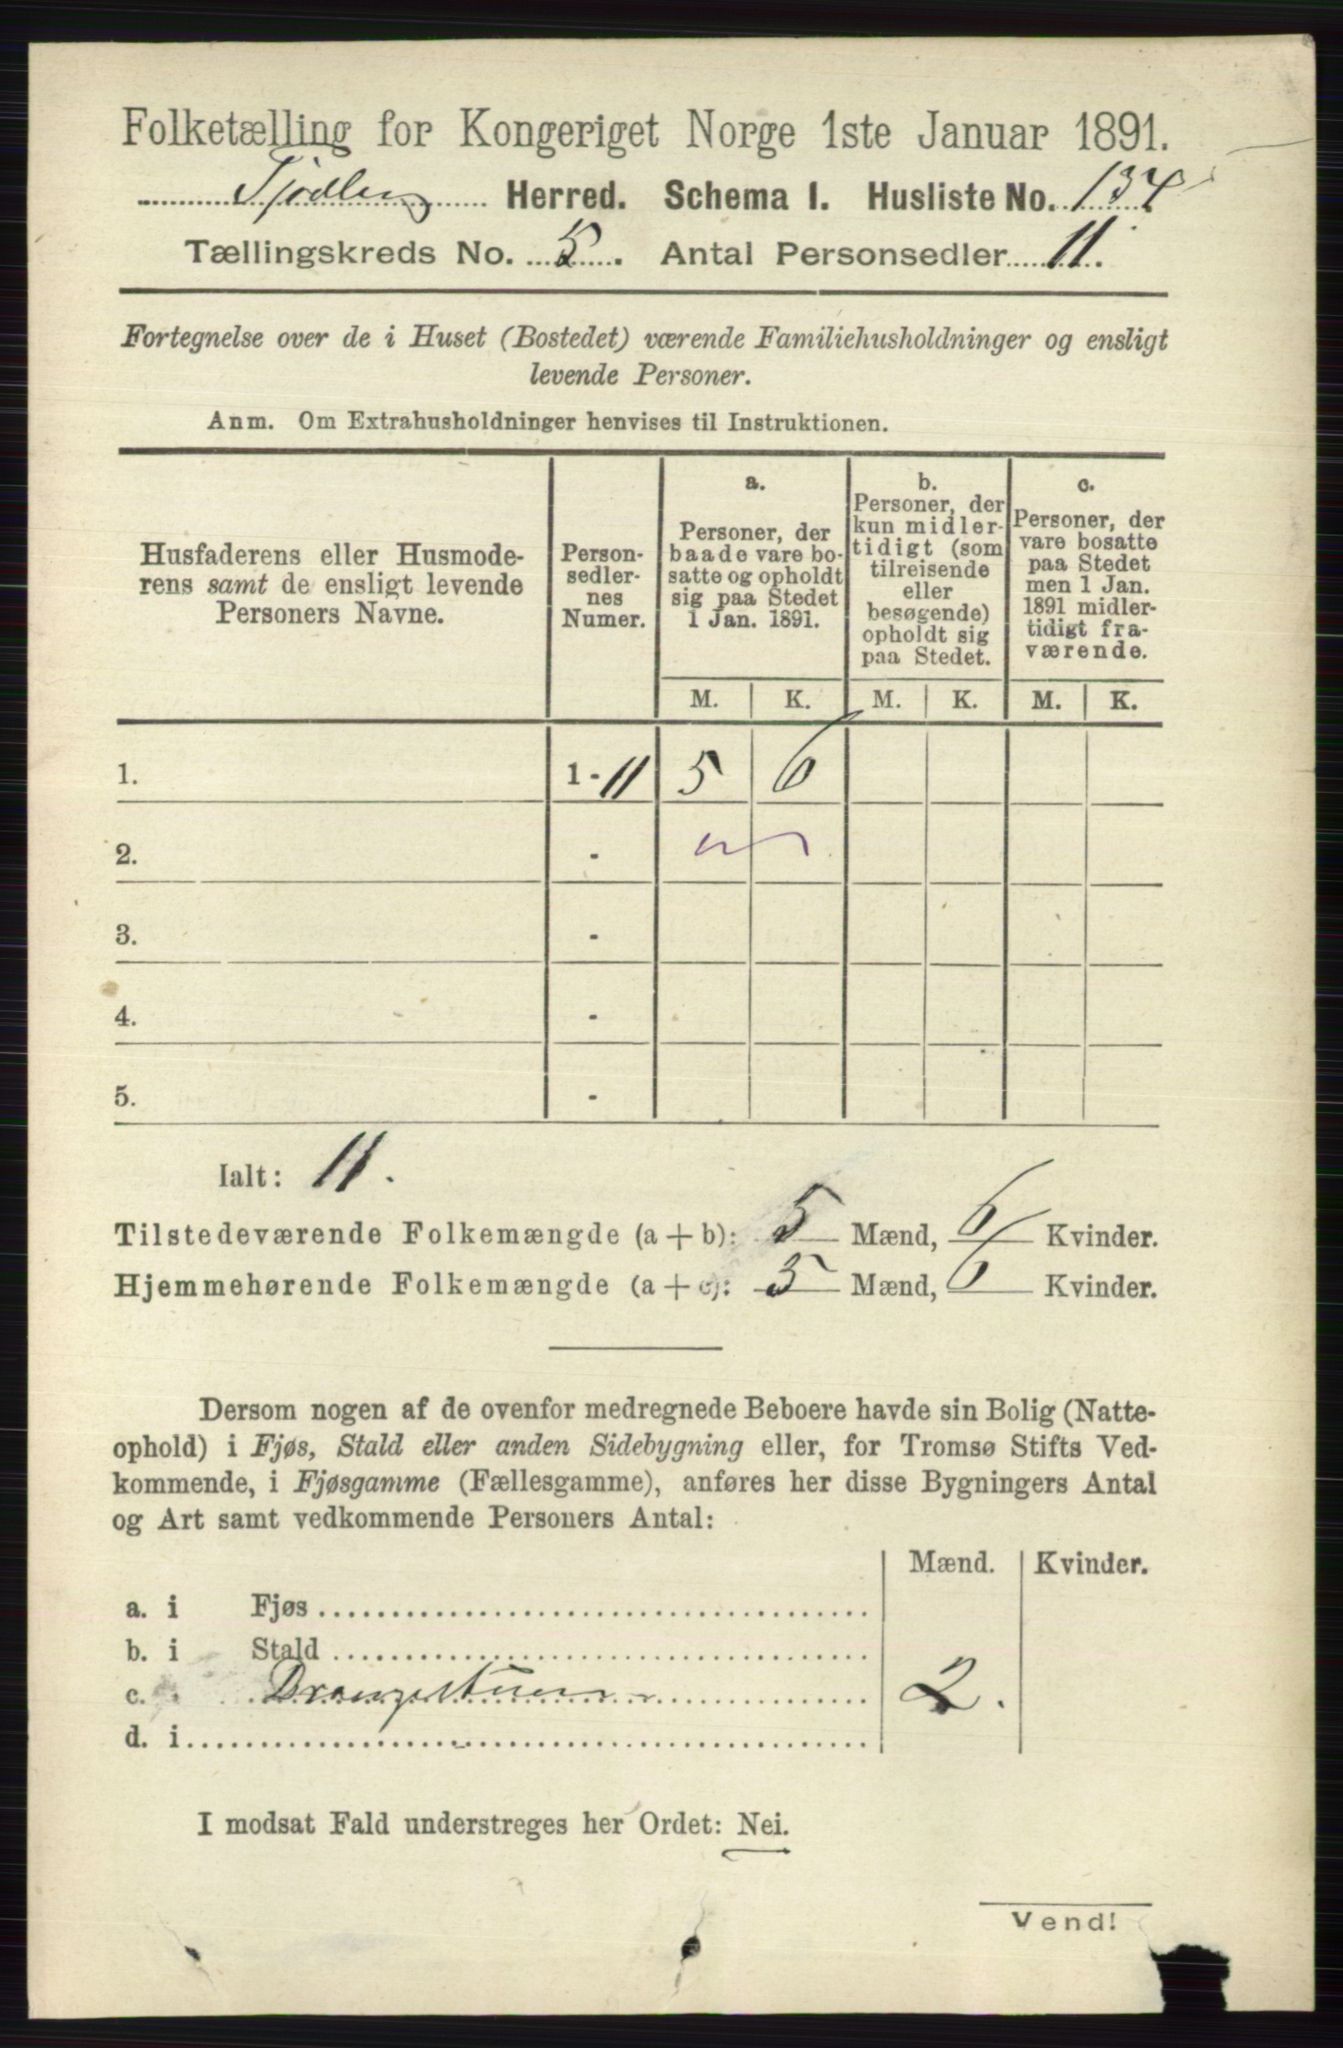 Folketælling for Kongeriget Norge 1ste Januar 1891.
Tjodling Herred. Schema I. Husliste No. 134
Tællingskreds No. 5. Antal Personsedler 11.
Fortegnelse over de i Huset (Bostedet) værende Familiehusholdninger og ensligt
levende Personer.
Anm. Om Extrahusholdninger henvises til Instruktionen.
Husfaderens eller Husmode-
rens samt de ensligt levende
Personers Navne.
Person-
sedler-
nes
Numer.
a.
Personer, der
baade vare bo-
satte og opholdt
sig paa Stedet
1 Jan. 1891.
b.
Personer, der
kun midler-
tidigt (som
tilreisende
eller
besøgende)
opholdt sig
paa Stedet.
c.
Personer, der
vare bosatte
paa Stedet
men 1 Jan.
1891 midler-
tidigt fra-
værende.
M. K. M. K. M. K.
1. 1 - 11 5 6
2. -
3. -
4. -
5. -
Ialt: 11.
Tilstedeværende Folkemængde (a + b): 5 Mænd, 6 Kvinder.
Hjemmehørende Folkemængde (a + c): 5 Mænd, 6 Kvinder.
Dersom nogen af de ovenfor medregnede Beboere havde sin Bolig (Natte-
ophold) i Fjøs, Stald eller anden Sidebygning eller, for Tromsø Stifts Ved-
kommende, i Fjøsgamme (Fællesgamme), anføres her disse Bygningers Antal
og Art samt vedkommende Personers Antal:
Mænd. Kvinder.
a. i Fjøs
b. i Stald
c. 2.
d. i
I modsat Fald understreges her Ordet: Nei.
Vend!